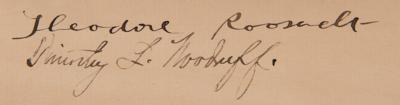 Theodore Roosevelt
Timothy L. Woodruff.